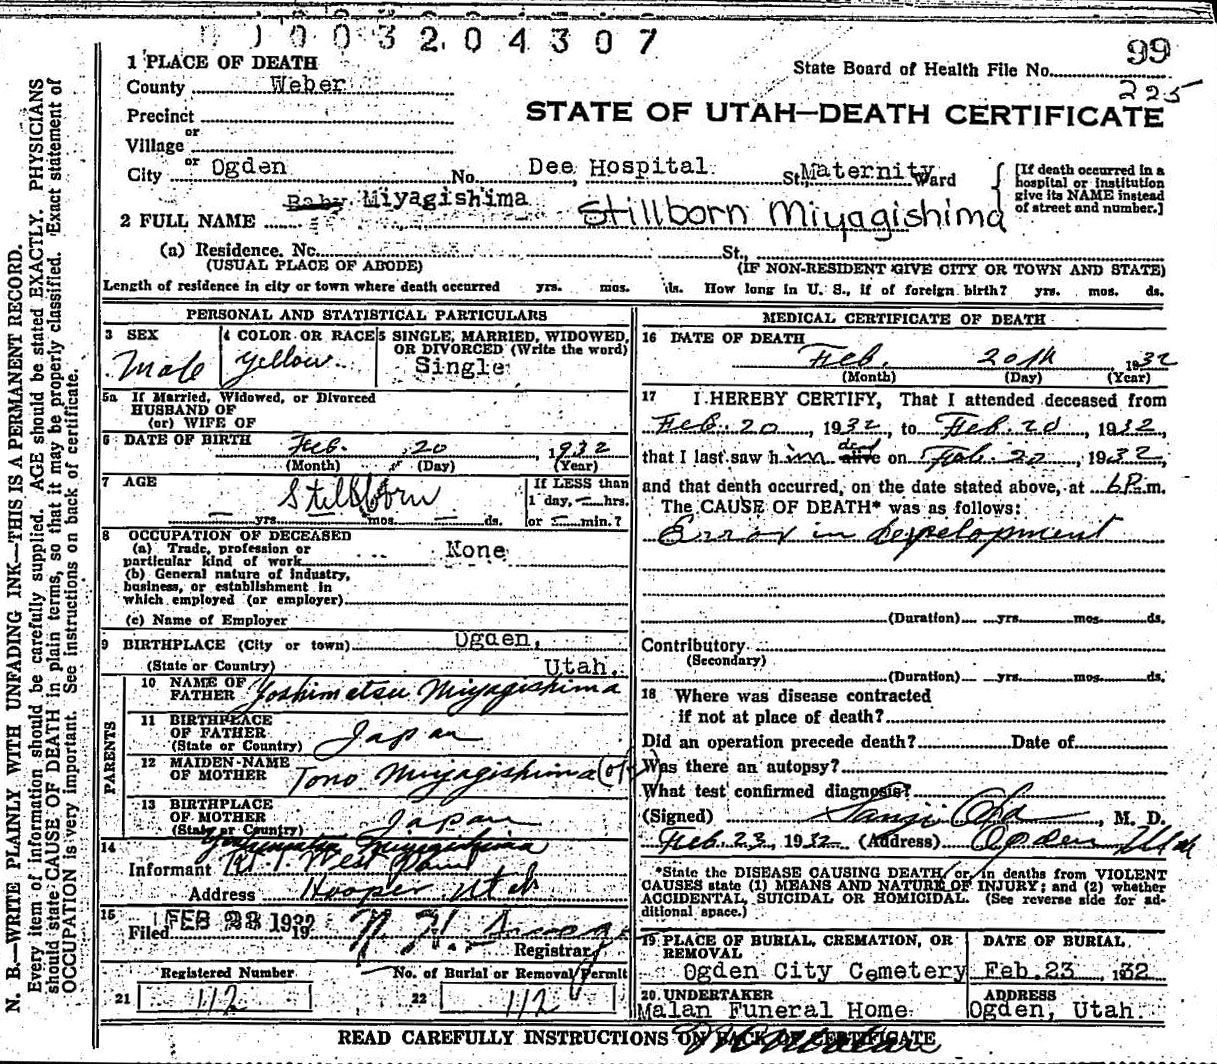 0003204307
99
State Board of Health File No.
225
STATE OF UTAH—DEATH CERTIFICATE
1 PLACE OF DEATH
County Weber
Precinct
or
Village
or
City Ogden No. Dee Hospital St., Maternity Ward
[If death occurred in a hospital or institution give its NAME instead of street and number.]
2 FULL NAME Baby Miyagishima Stillborn Miyagishima
(a) Residence. No. St.,
(USUAL PLACE OF ABODE) (IF NON-RESIDENT GIVE CITY OR TOWN AND STATE)
Length of residence in city or town where death occurred yrs. mos. ds. How long in U. S., if of foreign birth? yrs. mos. ds.
PERSONAL AND STATISTICAL PARTICULARS
3 SEX
Male
4 COLOR OR RACE
Yellow
5 SINGLE, MARRIED, WIDOWED, OR DIVORCED (Write the word)
Single
5a If Married, Widowed, or Divorced
HUSBAND OF
(or) WIFE OF
6 DATE OF BIRTH Feb. 20, 1932
(Month) (Day) (Year)
7 AGE
Stillborn
yrs. mos. ds.
If LESS than
1 day, — hrs.
or — min.?
8 OCCUPATION OF DECEASED
(a) Trade, profession or
particular kind of work None
(b) General nature of industry,
business, or establishment in
which employed (or employer)
(c) Name of Employer
9 BIRTHPLACE (City or town) Ogden,
(State or Country) Utah.
PARENTS
10 NAME OF FATHER Yoshimatsu Miyagishima
11 BIRTHPLACE OF FATHER (State or Country) Japan
12 MAIDEN-NAME OF MOTHER Tono Miyagishima (ok)
13 BIRTHPLACE OF MOTHER (State or Country) Japan
14
Informant Yoshimatsu Miyagishima
Rt. 1. West
Address Hooper Utah
15
Filed FEB 23 1932 19
Registrar
Registered Number
21 112
No. of Burial or Removal Permit
22 112
MEDICAL CERTIFICATE OF DEATH
16 DATE OF DEATH
Feb. 20th 1932
(Month) (Day) (Year)
17 I HEREBY CERTIFY, That I attended deceased from
Feb. 20, 1932, to Feb. 20, 1932,
that I last saw him alive dead on Feb. 20, 1932,
and that death occurred, on the date stated above, at 6P.m.
The CAUSE OF DEATH* was as follows:
Error in Development
(Duration) yrs. mos. ds.
Contributory
(Secondary)
(Duration) yrs. mos. ds.
18 Where was disease contracted
if not at place of death?
Did an operation precede death? Date of
Was there an autopsy?
What test confirmed diagnosis?
(Signed) , M. D.
Feb. 23, 1932 (Address) Ogden Utah
*State the DISEASE CAUSING DEATH, or, in deaths from VIOLENT
CAUSES state (1) MEANS AND NATURE OF INJURY; and (2) whether
ACCIDENTAL, SUICIDAL OR HOMICIDAL. (See reverse side for ad-
ditional space.)
19 PLACE OF BURIAL, CREMATION, OR REMOVAL
Ogden City Cemetery
DATE OF BURIAL
Feb. 23, 1932
20 UNDERTAKER
Malan Funeral Home
ADDRESS
Ogden, Utah.
READ CAREFULLY INSTRUCTIONS ON BACK OF CERTIFICATE
N. B.—WRITE PLAINLY WITH UNFADING INK—THIS IS A PERMANENT RECORD.
Every item of information should be carefully supplied. AGE should be stated EXACTLY. PHYSICIANS
should state CAUSE OF DEATH in plain terms, so that it may be properly classified. Exact statement of
OCCUPATION is very important. See instructions on back of certificate.